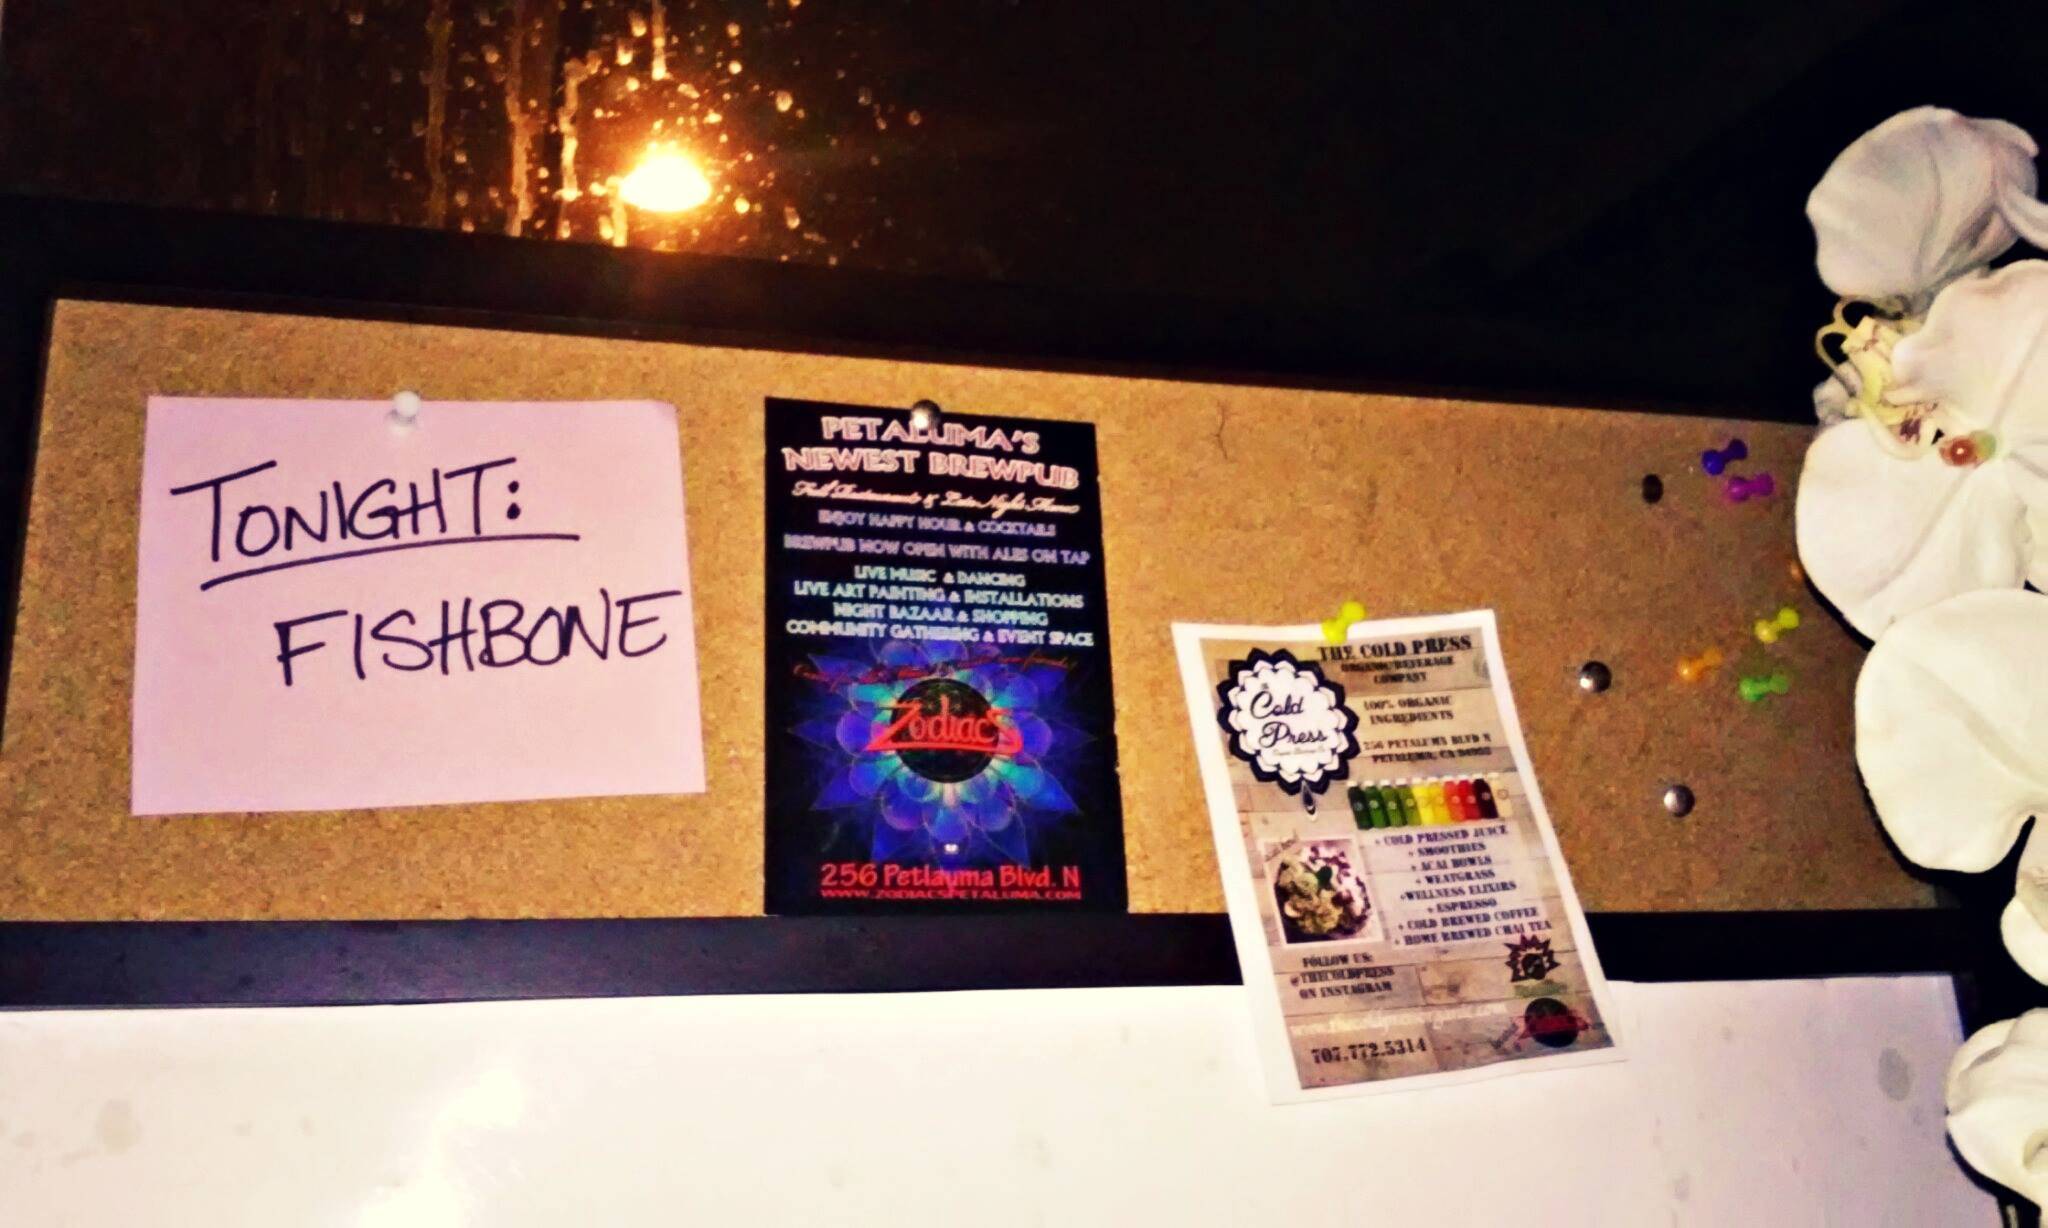 TONIGHT:
FISHBONE
PETALUMA'S
NEWEST BREWPUB
Full Restaurant & Late Night Menu
ENJOY HAPPY HOUR & COCKTAILS
BREWPUB NOW OPEN WITH ALES ON TAP
LIVE MUSIC & DANCING
LIVE ART PAINTING & INSTALLATIONS
NIGHT BAZAAR & SHOPPING
COMMUNITY GATHERING & EVENT SPACE
Zodiacs
256 Petlauma Blvd. N
WWW.ZODIACSPETALUMA.COM
THE COLD PRESS
ORGANIC BEVERAGE
COMPANY
The
Cold
Press
100% ORGANIC
INGREDIENTS
256 PETALUMA BLVD N
PETALUMA, CA 94952
+ COLD PRESSED JUICE
+ SMOOTHIES
+ ACAI BOWLS
+ WEATGRASS
+WELLNESS ELIXIRS
+ ESPRESSO
+ COLD BREWED COFFEE
+ HOME BREWED CHAI TEA
FOLLOW US:
@THECOLDPRESS
ON INSTAGRAM
707.772.5314
Zodiacs